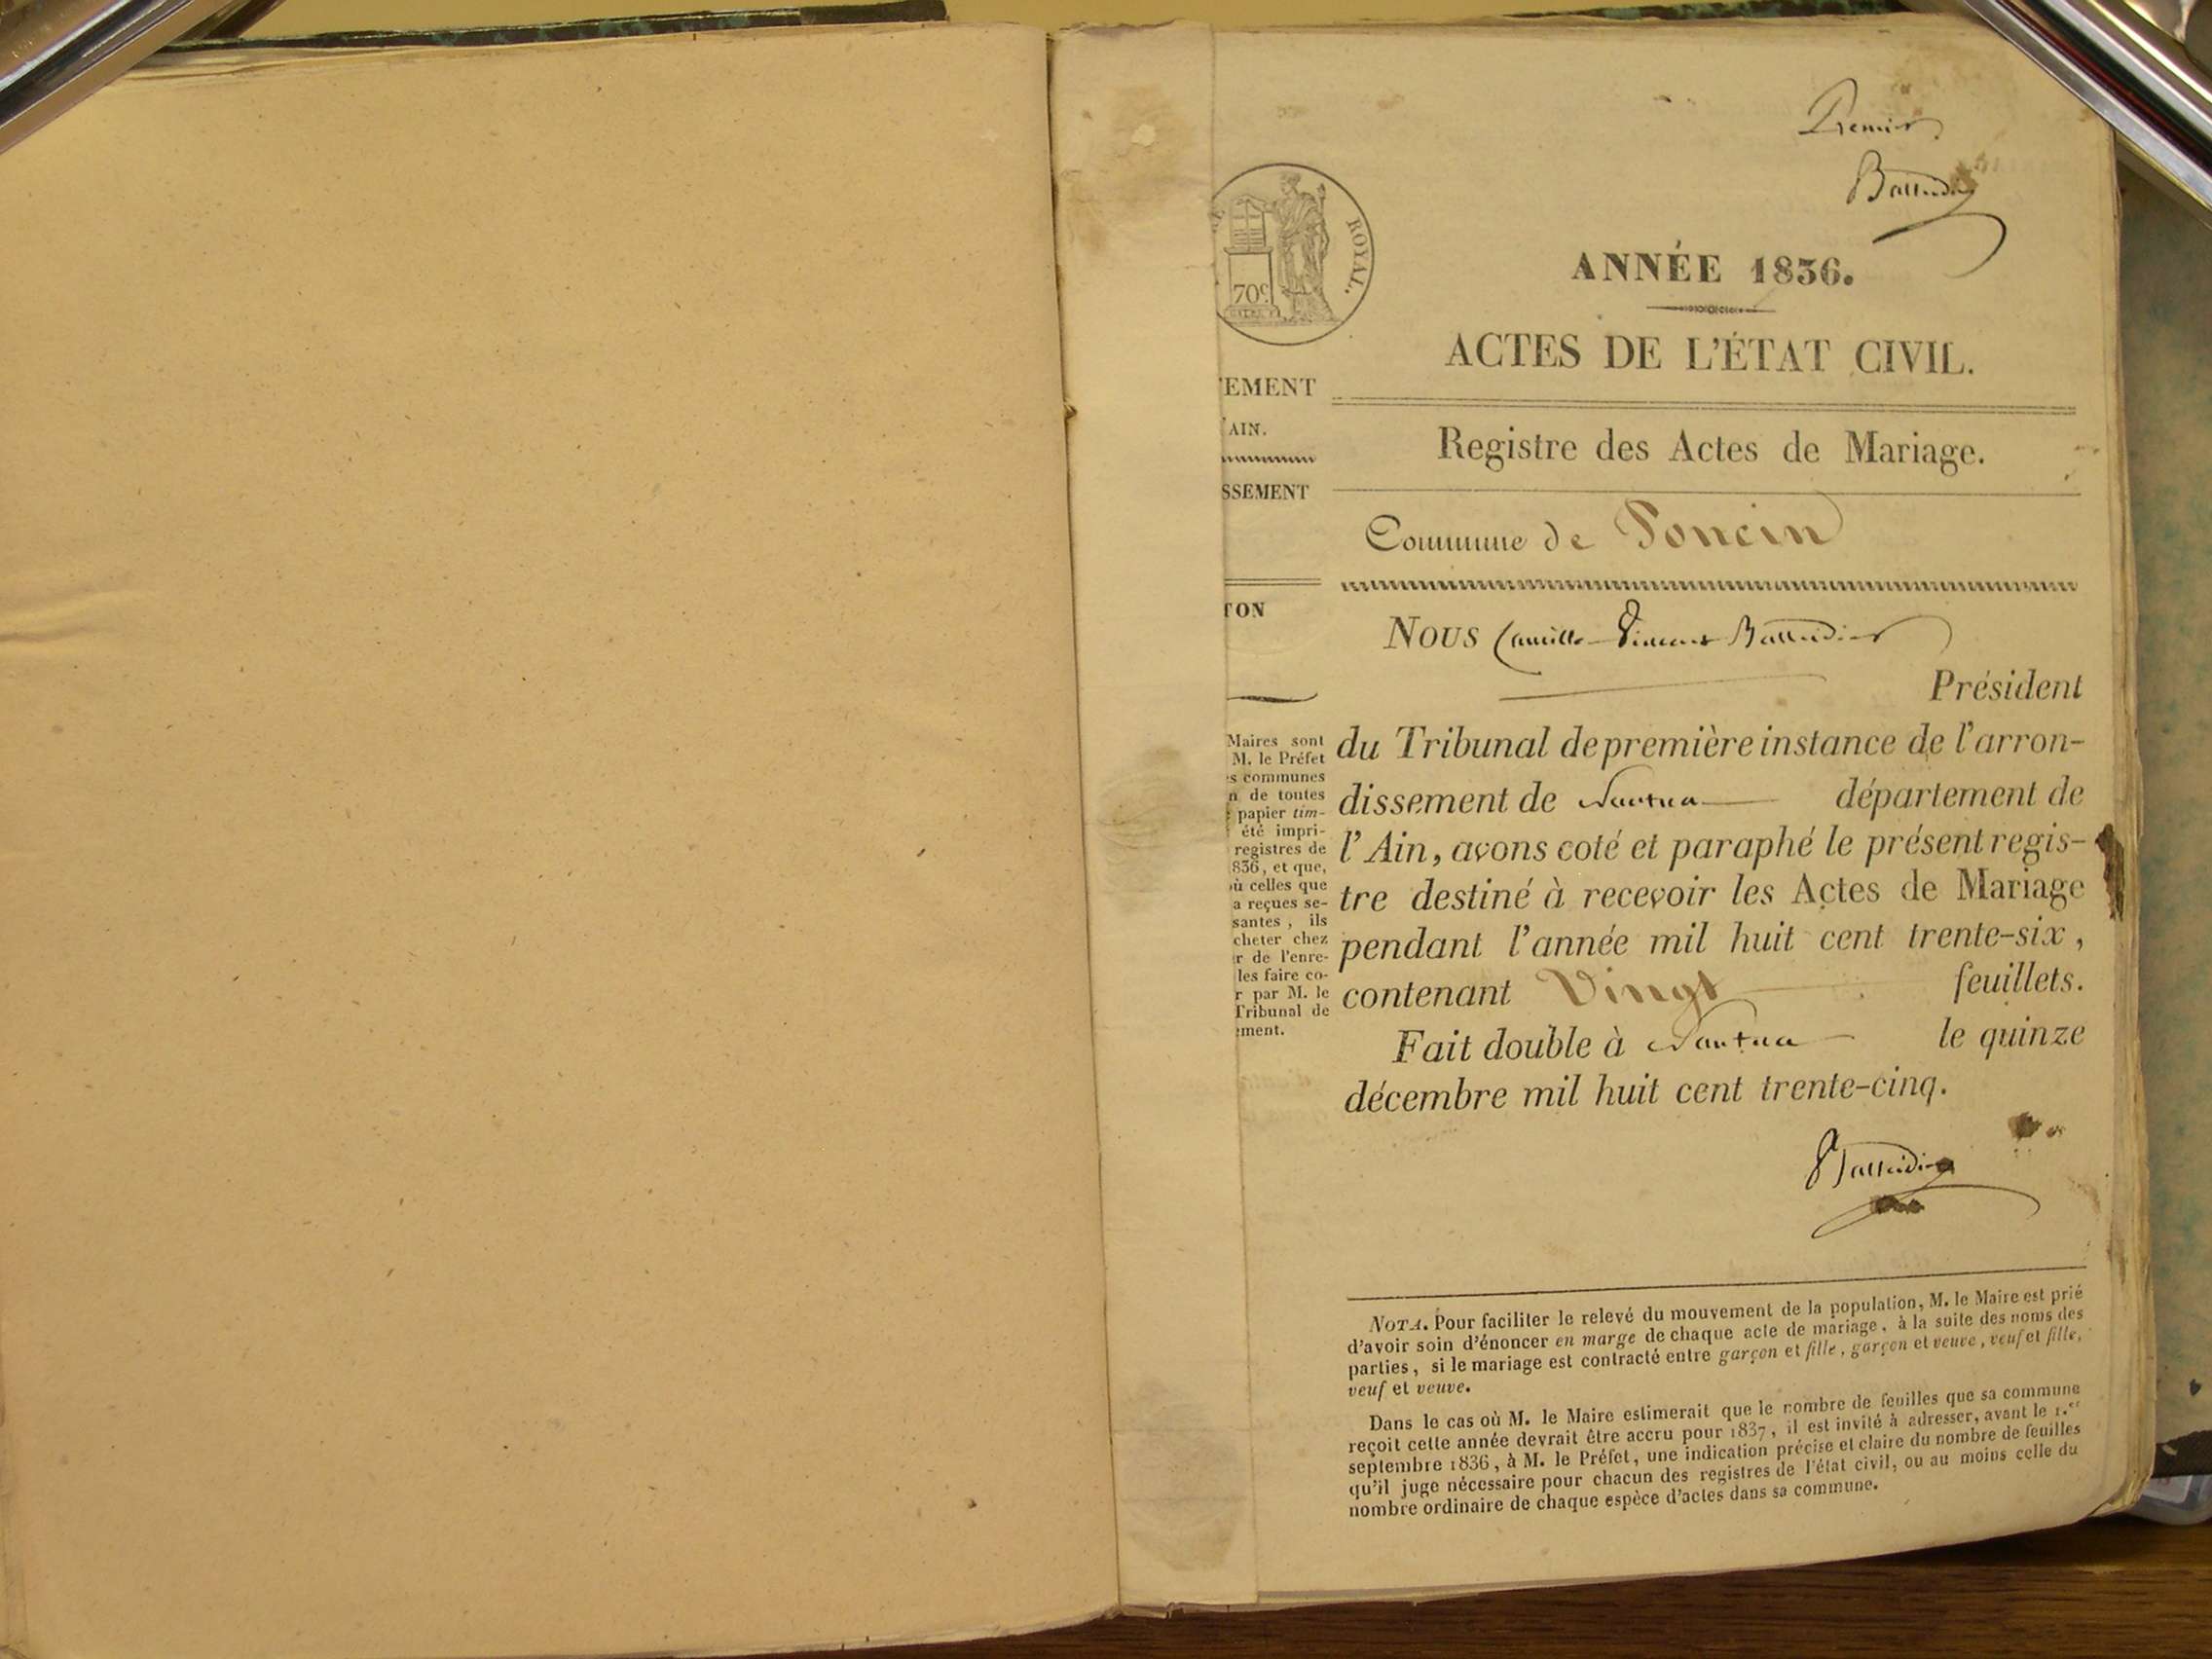 Premier
Battudier
ROYAL.
70c
ANNÉE 1836.
ACTES DE L'ÉTAT CIVIL.
EMENT
AIN.
SSEMENT
TON
Registre des Actes de Mariage.
Commune de Poncin
Nous Camille Vincent
Président
du Tribunal de première instance de l'arron-
dissement de Nantua département de
l'Ain, avons coté et paraphé le présent regis-
tre destiné à recevoir les Actes de Mariage
pendant l'année mil huit cent trente-six,
contenant Vingt feuillets.
Fait double à Nantua le quinze
décembre mil huit cent trente-cinq.
Maires sont
M. le Préfet
s communes
n de toutes
papier tim-
été impri-
registres de
836, et que,
ù celles que
a reçues se-
santes, ils
cheter chez
r de l'enre-
les faire co-
r par M. le
Tribunal de
ement.
NOTA. Pour faciliter le relevé du mouvement de la population, M. le Maire est prié
d'avoir soin d'énoncer en marge de chaque acte de mariage, à la suite des noms des
parties, si le mariage est contracté entre garçon et fille, garçon et veuve, veuf et fille,
veuf et veuve.
Dans le cas où M. le Maire estimerait que le nombre de feuilles que sa commune
reçoit cette année devrait être accru pour 1837, il est invité à adresser, avant le 1.er
septembre 1836, à M. le Préfet, une indication précise et claire du nombre de feuilles
qu'il juge nécessaire pour chacun des registres de l'état civil, ou au moins celle du
nombre ordinaire de chaque espèce d'actes dans sa commune.